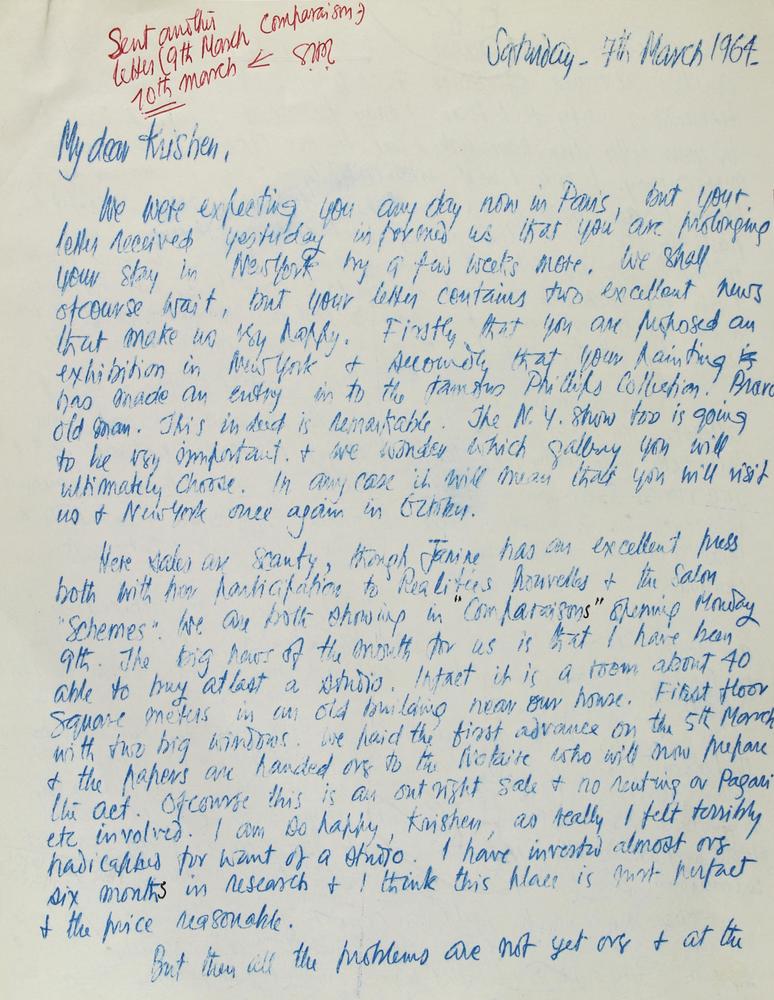 Sent another
letter (9th March Comparaison)
10th march ←
Saturday - 7th March 1964
My dear Krishen,
We were expecting you any day now in Paris, but your
letter received yesterday informed us that you are prolonging
your stay in NewYork by a few weeks more. We shall
ofcourse wait, but your letter contains two excellent news
that make us very happy. Firstly that you are proposed an
exhibition in NewYork & Secondly that your painting
has made an entry in to the famous Phillips Collection. Bravo
old man. This indeed is remarkable. The N.Y. show too is going
to be very important. & we wonder which gallery you will
ultimately choose. In any case it will mean that you will visit
us & NewYork once again in October.
Here sales are scanty, though Janine has an excellent press
both with her participation to Realities Nouvelles & the Salon
"Schemes". We are both showing in "Comparaisons" opening Monday
9th. The big news of the month for us is that I have been
able to buy atlast a studio. Infact it is a room about 40
Square meters in an old building near our house. First floor
with two big windows. We paid the first advance on the 5th March
& the papers are handed over to the Notaire who will now prepare
the act. Ofcourse this is an outright sale & no renting or Pagari
etc involved. I am so happy, Krishen, as really I felt terribly
hadicapped for want of a studio. I have invested almost over
six months in research & I think this place is most perfect
& the price reasonable.
But then all the problems are not yet over & at the